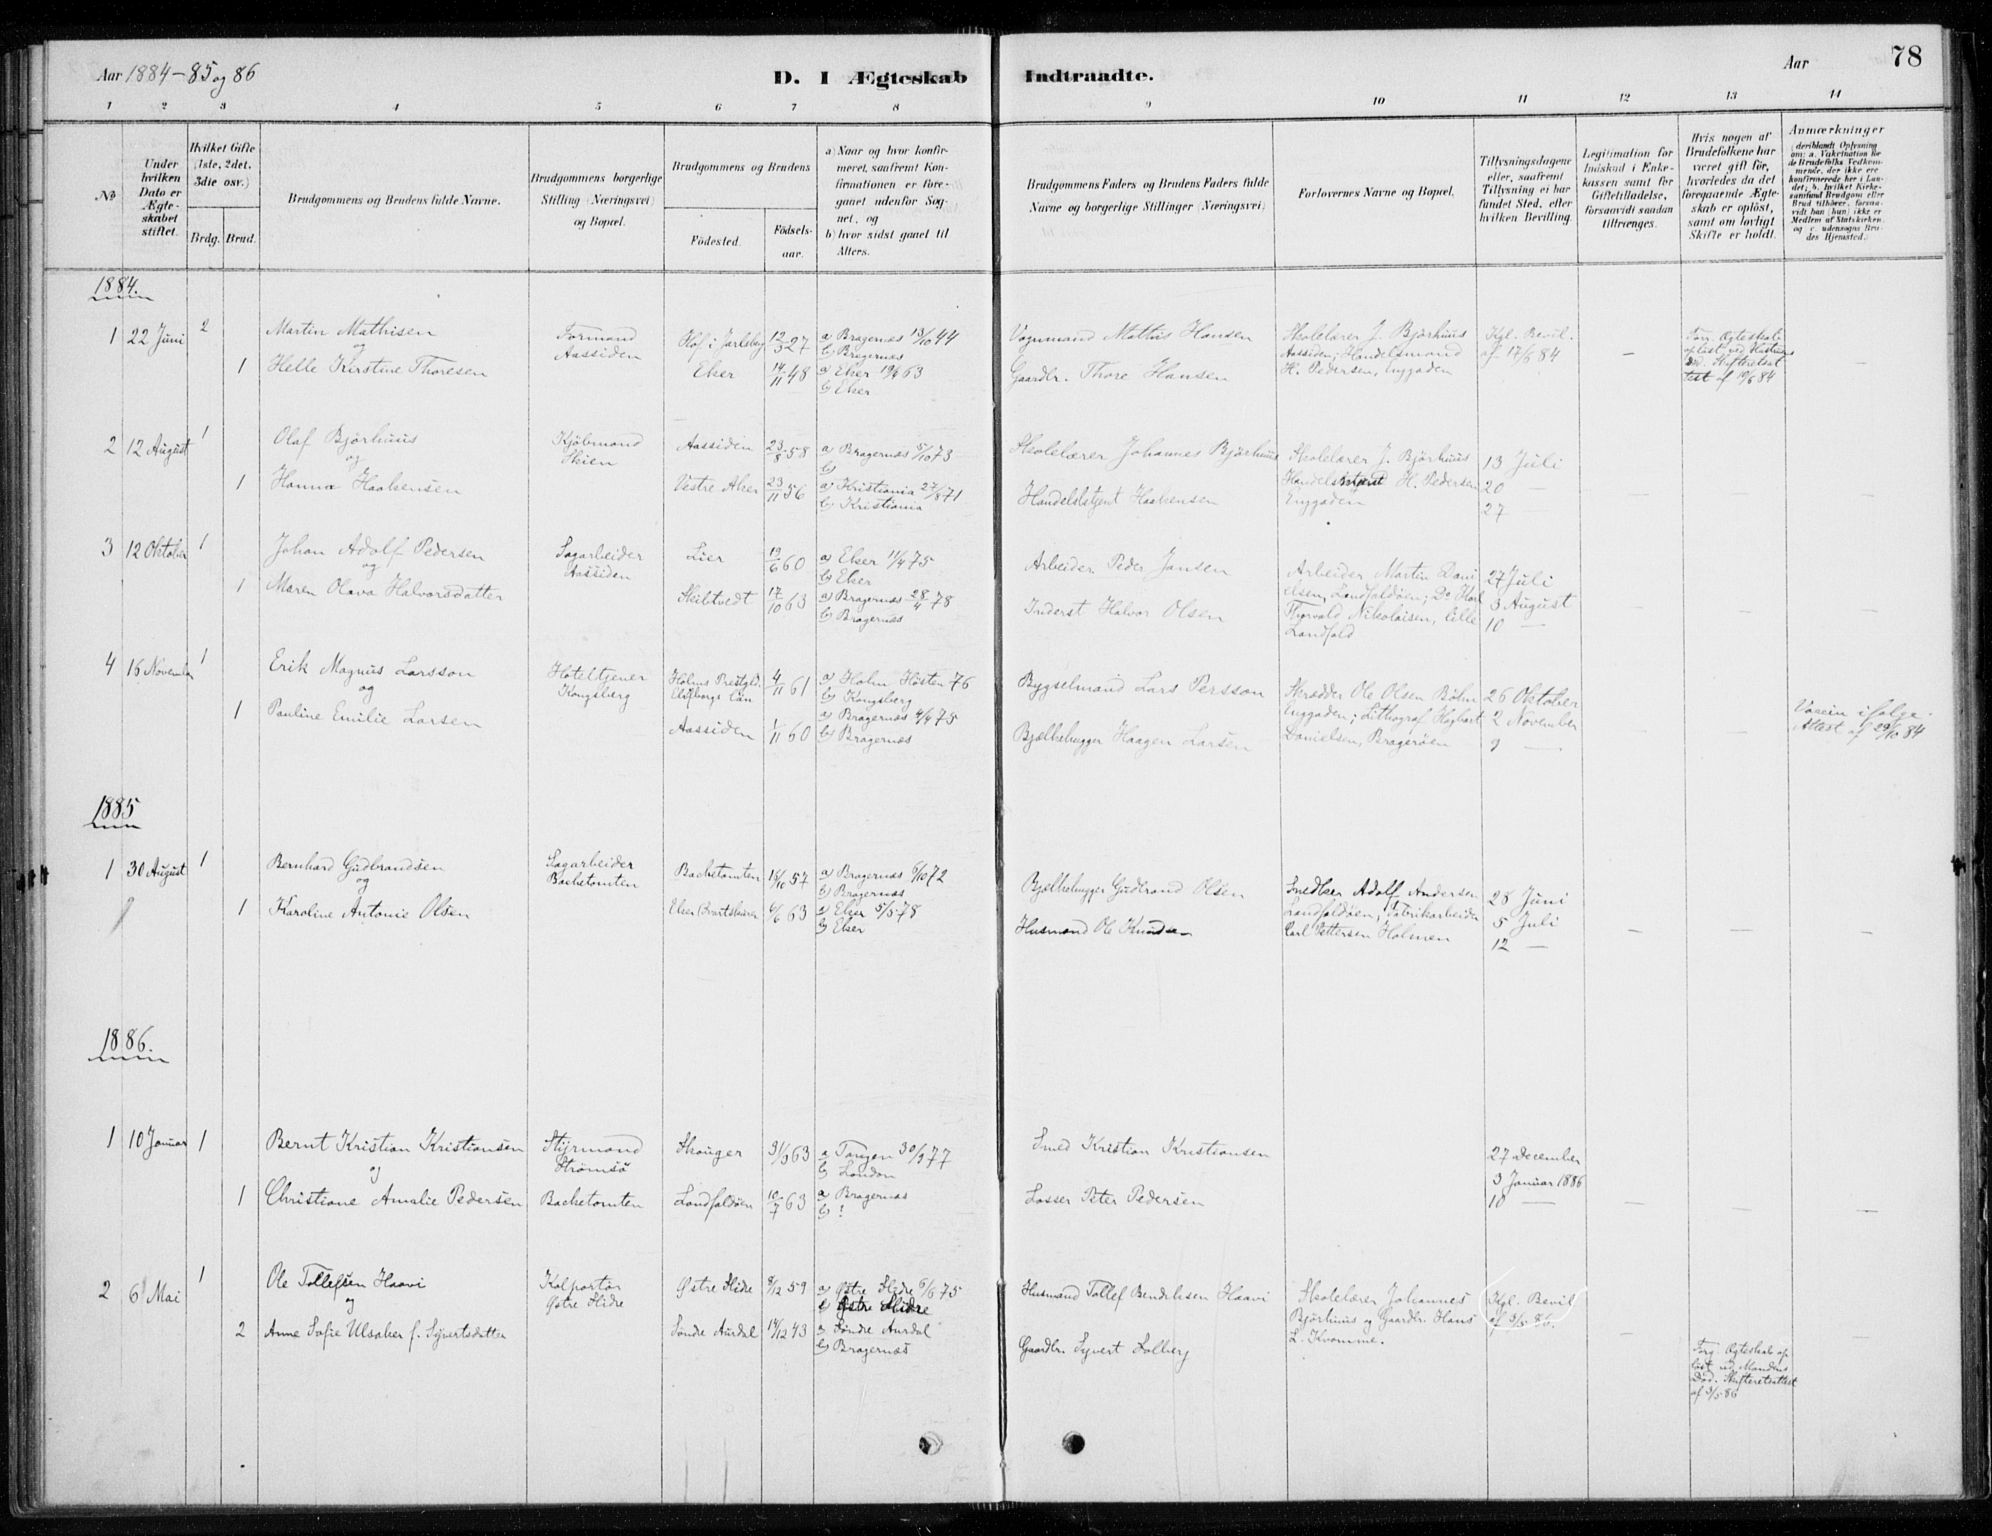 Aar 1884-85 og 86
D. I Ægteskab Indtraadte.
Aar 78
1 2 3 4 5 6 7 8 9 10 11 12 13 14
No
Under hvilken Dato er Ægteskabet stiftet.
Hvilket Gifte (1ste, 2det, 3die osv.)
Brdg. Brud.
Brudgommens og Brudens fulde Navne.
Brudgommens borgerlige Stilling (Næringsvei) og Bopæl.
Brudgommens og Brudens
Födested.
Födselsaar.
a) Naar og hvor konfirmeret, saafremt Konfirmationen er foregaaet udenfor Sognet, og
b) hvor sidst gaaet til Alters.
Brudgommens Faders og Brudens Faders fulde Navne og borgerlige Stillinger (Næringsvei)
Forlovernes Navne og Bopæl.
Tillysningsdagene eller, saafremt Tillysning ei har fundet Sted, efter hvilken Bevilling.
Legitimation for Indskud i Enkekassen samt for Giftetilladelse, forsaavidt saadan tiltrænges.
Hvis nogen af Brudefolkene har været gift før, hvorledes da det foregaaende Ægteskab er oplöst, samt om lovligt Skifte er holdt.
Anmærkninger (deriblandt Oplysning om: a. Vakcination for de Brudefolks Vedkommende, der ikke ere konfirmerede her i Landet; b. hvilket Kirkesamfund Brudgom eller Brud tilhører, forsaavidt han (hun) ikke er Medlem af Statskirken, og c. udensogns Brudes Hjemsted.)
1884.
1 22 Juni 2 Martin Mathisen Formand Hof i Jarlsberg 12/3 27 a) Bragernæs 13/10 44 Vognmand Mathis Hansen Skolelærer J. Bjørhuus Kgl. Bevil.
og Aassiden b) Bragernæs Aassiden; Handelsmand af 17/6 84 –
1 Helle Kirstine Thoresen Eker 14/11 48 a) Eker 19/4 63 Gaardbr. Thore Hansen H. Pedersen, Enggaden
b) Eker
Forr. Ægteskab
opløst ved Hustrues
Død. Skifteretsat
test af 19/6 84
2 12 August 1 Olaf Bjørhuus Kjøbmand Aassiden 23/8 58 a) Bragernæs 5/10 73 Skolelærer Johannes Bjørhuus Skolelærer J. Bjørhuus 13 Juli
og Skien b) H. Pedersen 20 –
1 Hanna Haakensen Vestre Aker 23/11 56 a) Kristiania 27/8 71 Handelsbetjent Haakensen Enggaden 27
b) Kristiania
3 12 Oktober 1 Johan Adolf Pedersen Sagarbeider Lier 19/6 60 a) Eker 11/4 75 Arbeider Peder Jansen Arbeider Martin Dani 27 Juli
og Aassiden b) Eker elsen, Landfaldøen; Do Karl 3 August
1 Maren Olava Halvorsdatter Skibtvedt 17/10 63 a) Bragernæs 28/4 78 Inderst Halvor Olsen Thorvald Nikolaisen, lille 10 –
b) Bragernæs Landfald
4 16 November 1 Erik Magnus Larsson Hoteltjener Holms Prestgld. 4/11 61 a) Holm Høsten 76 Bygselmand Lars Persson Skrædder Ole Olsen Bøhn 26 Oktober
og Kongsberg Elfsborgs Län b) Kongsberg Enggaden; Lithograf Hagbart 2 November
1 Pauline Emilie Larsen Aassiden 1/11 60 a) Bragernæs 4/4 75 Bjælkehugger Haagen Larsen Danielsen, Bragerøen 9 –
b) Bragernæs
Vaccin ifølge
Attest af 29/10 84
1885
1 30 August 1 Bernhard Gudbrandsen Sagarbeider Bachetomten 18/10 57 a) Bragernæs 6/10 72 Bjælkehugger Gudbrand Olsen Snedker Adolf Andersen 28 Juni
og Bachetomten b) Bragernæs Landfaldøen, Fabrikarbeider 5 Juli
1 Karoline Antonie Olsen Eker 4/6 63 a) Eker 5/5 78 Husmand Ole Knudsen Carl Pettersen Holmen 12 –
b) Eker
1886.
1 10 Januar 1 Bernt Kristian Kristiansen Styrmand Skouger 31/3 63 a Tangen 30/9 77 Smed Kristian Kristiansen 27 December
og Strømsø b) London 3 Januar 1886
1 Christiane Amalie Pedersen Bachetomten Landfaldøen 10/7 63 a) Bragernæs Losser Peter Pedersen 10 –
b) !
2 6 Mai 1 Ole Tollefsen Haavi Kolportør Østre Slidre 8/12 59 a) Østre Slidre 6/6 75 Husmand Tollef Bendiksen Haavi Skolelærer Johannes Kgl. Bevil
og Østre Slidre b) Østre Slidre Bjørhuus og Gaardbr. Hans af 3/5 86.
2 Anne Sofie Ulsaker f. Syvertsdatter Søndre Aurdal 14/12 43 a Søndre Aurdal Gaardbr. Syvert Solberg L. Kvamme.
b) Bragernæs
Forg. Ægteskab op
løst ved Mandens
Død. Skifteretsattest
af 3/5 86